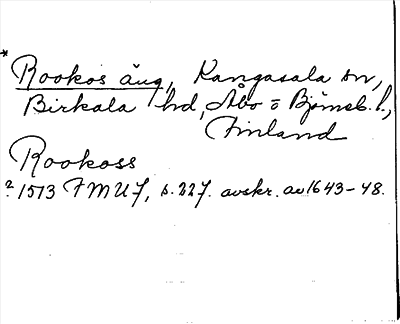 * Rookos äng, Kangasala sn,
Birkala hd, Åbo o Björneb. l.,
Finland
Rookoss
? 1513 FMU 7, s. 227. avskr. av 1643-48.